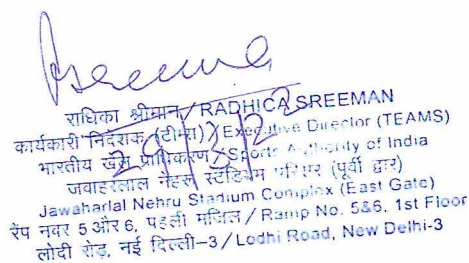 Sreeman
राधिका श्रीमान / RADHICA SREEMAN
कार्यकारी निदेशक (टीम्स) / Executive Director (TEAMS)
भारतीय खेल प्राधिकरण / Sports Authority of India
29/3/22
जवाहरलाल नेहरू स्टेडियम परिसर (पूर्वी द्वार)
Jawaharlal Nehru Stadium Complex (East Gate)
रैंप नवर 5 और 6, पहली मंजिल / Ramp No. 5&6, 1st Floor
लोदी रोड़, नई दिल्ली-3 / Lodhi Road, New Delhi-3